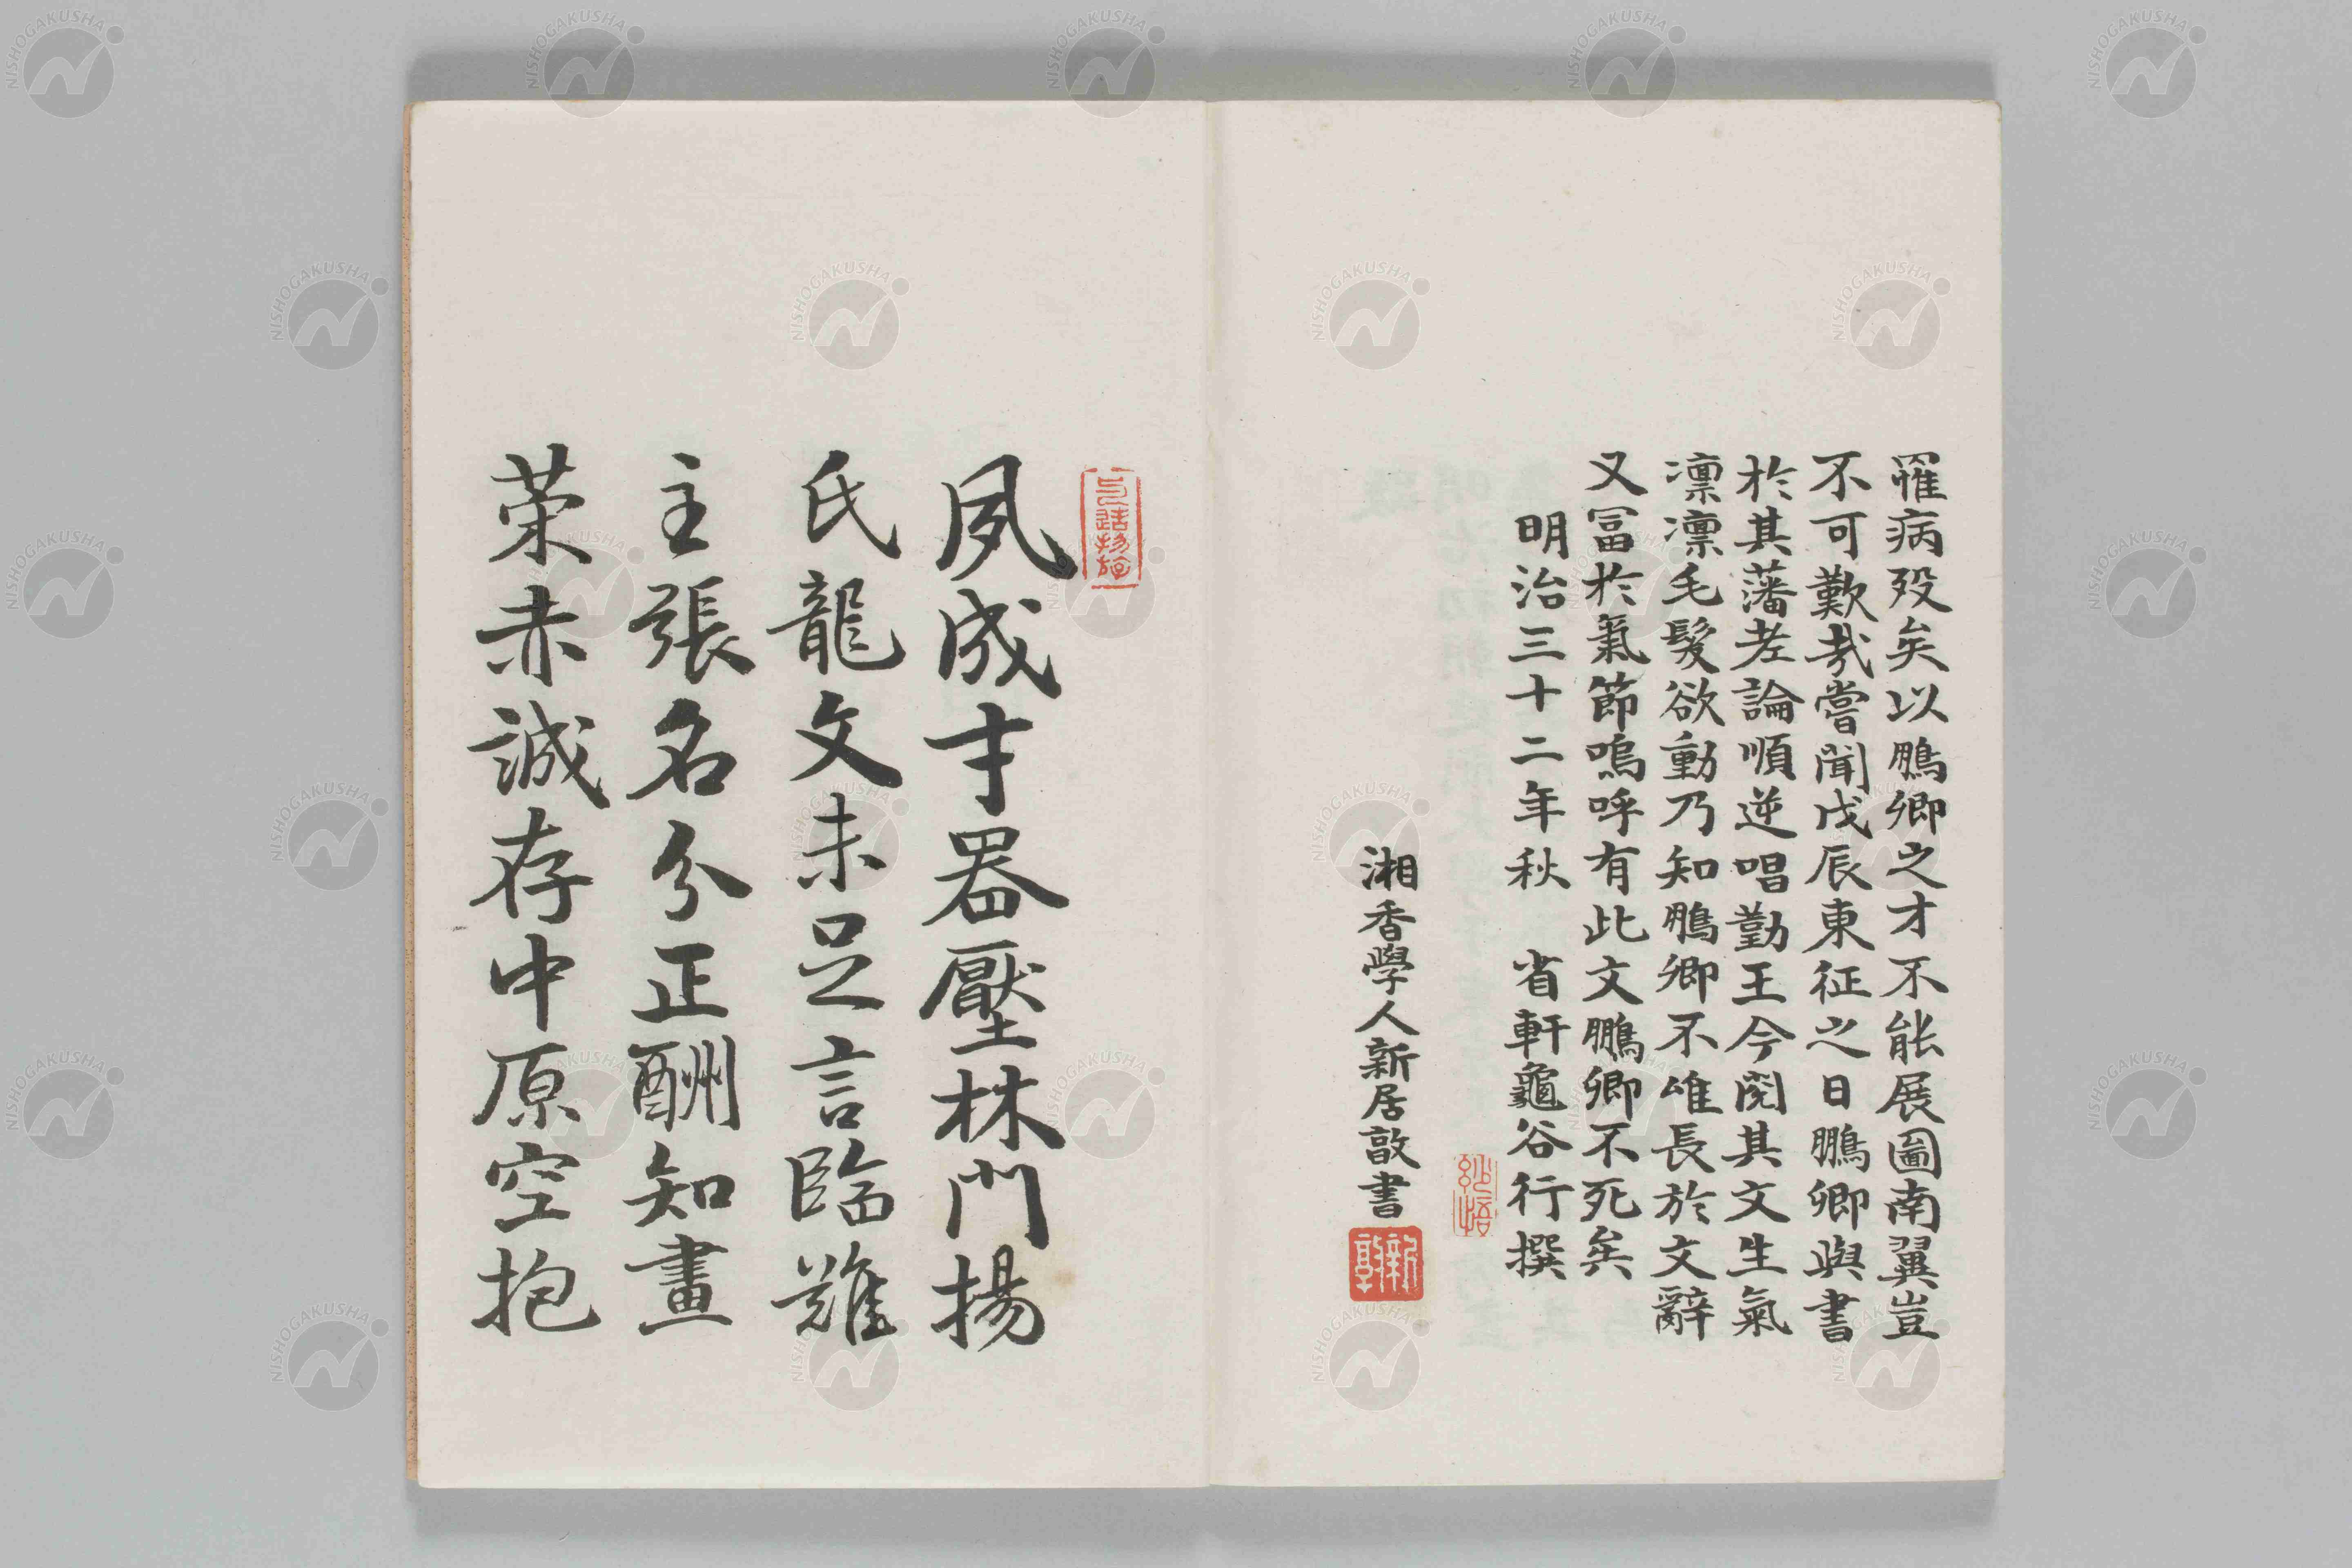 罹病歿矣以鵬卿之才不能展圖南翼豈
不可歎哉嘗聞戊辰東征之日鵬卿與書
於其藩老論順逆唱勤王今閱其文生氣
凛凛毛髮欲動乃知鵬卿不唯長於文辭
又冨於氣節嗚呼有此文鵬卿不死矣
明治三十二年秋 省軒龜谷行撰
湘香學人新居敦書
夙成才器壓林門揚
氏龍文未足言臨難
主張名分正酬知畫
策赤誠存中原空抱
NISHOGAKUSHA